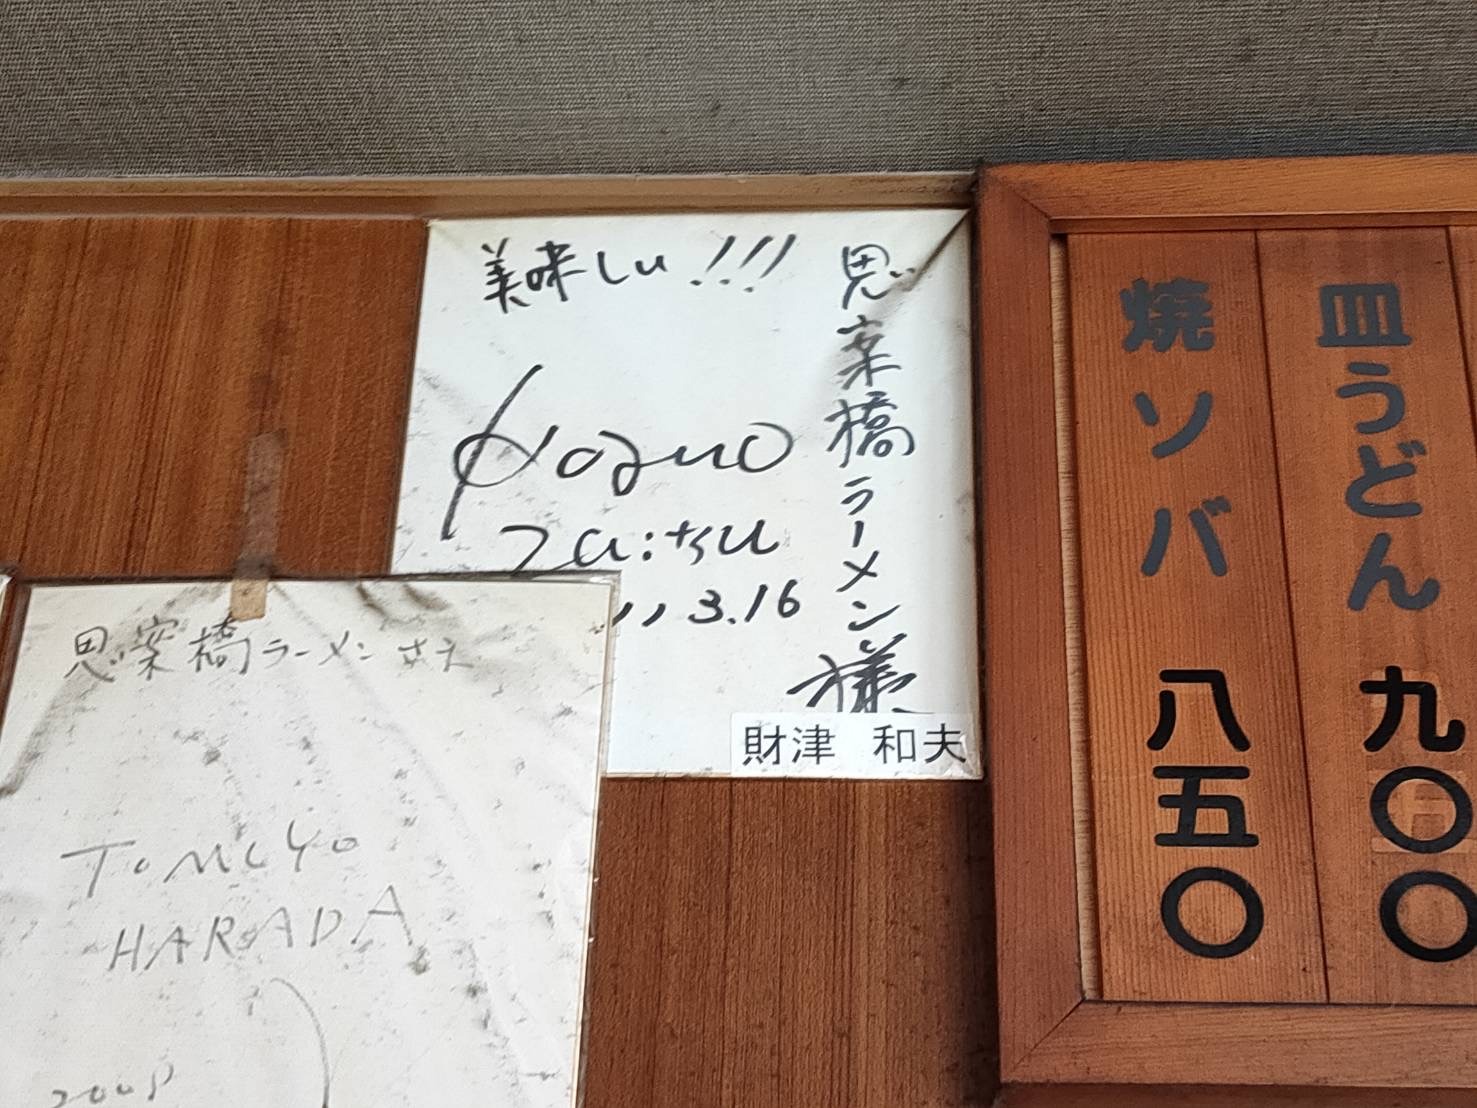 美味しい!!!
思案橋ラーメン様
Kazuo
Zaitsu
3.16
財津 和夫
思案橋ラーメンさえ
TOMOYO
HARADA
皿うどん 九〇〇
焼ソバ 八五〇